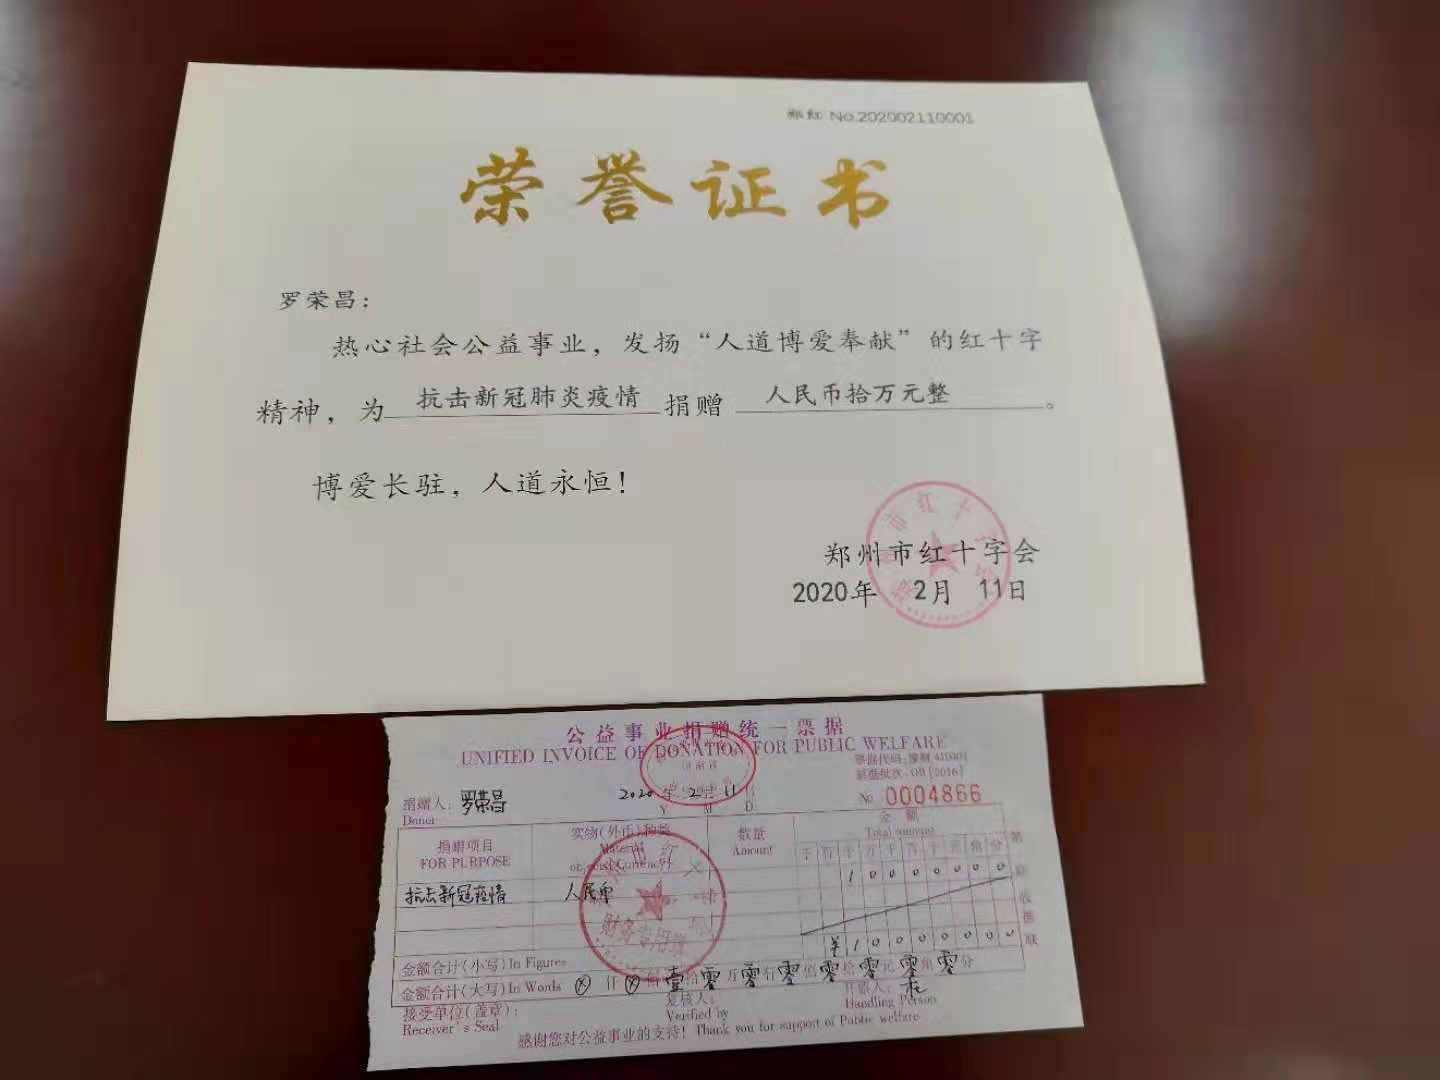 郑红 No.202002110001
荣誉证书
罗荣昌：
热心社会公益事业，发扬“人道博爱奉献”的红十字
精神，为 抗击新冠肺炎疫情 捐赠 人民币拾万元整 。
博爱长驻，人道永恒！
郑州市红十字会
2020年 2月 11日
公益事业捐赠统一票据
UNIFIED INVOICE OF DONATION FOR PUBLIC WELFARE
票据代码：豫财 410401
票据批次：OB [2016]
捐赠人：罗荣昌 2020 年 2 月 11 日 No 0004866
Donor Y M D
捐赠项目 实物(外币)种类 数量 金额
FOR PURPOSE Material Amount Total amount
objects(Currency)
千 百 十 万 千 百 十 元 角 分
抗击新冠疫情 人民币 1 0 0 0 0 0 0 0
财务专用章
金额合计(小写) In Figures ¥ 1 0 0 0 0 0 0 0
金额合计(大写) In Words ⊗ 仟 ⊗ 佰 壹 拾 零 万 零 仟 零 佰 零 拾 零 元 零 角 零 分
接受单位(盖章)： 复核人： 开票人：
Receiver's Seal Verified by Handling Person
感谢您对公益事业的支持！Thank you for support of Public welfare
第 收据联